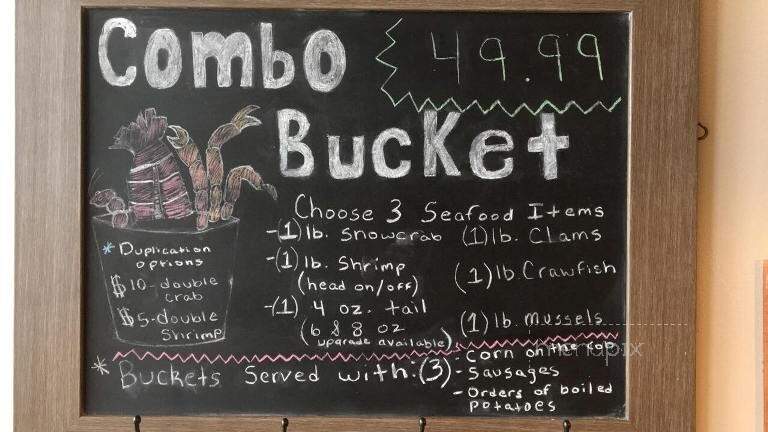 Combo 49.99
Bucket
Choose 3 Seafood Items
-(1) lb. Snowcrab
-(1) lb. Shrimp
(head on/off)
-(1) 4 oz. tail
(6 & 8 oz
upgrade available)
(1) lb. Clams
(1) lb. Crawfish
(1) lb. Mussels
* Duplication
options
$10-double
crab
$5-double
Shrimp
* Buckets Served with: (3)
- Corn on the cob
- Sausages
- Orders of boiled
potatoes
menupix